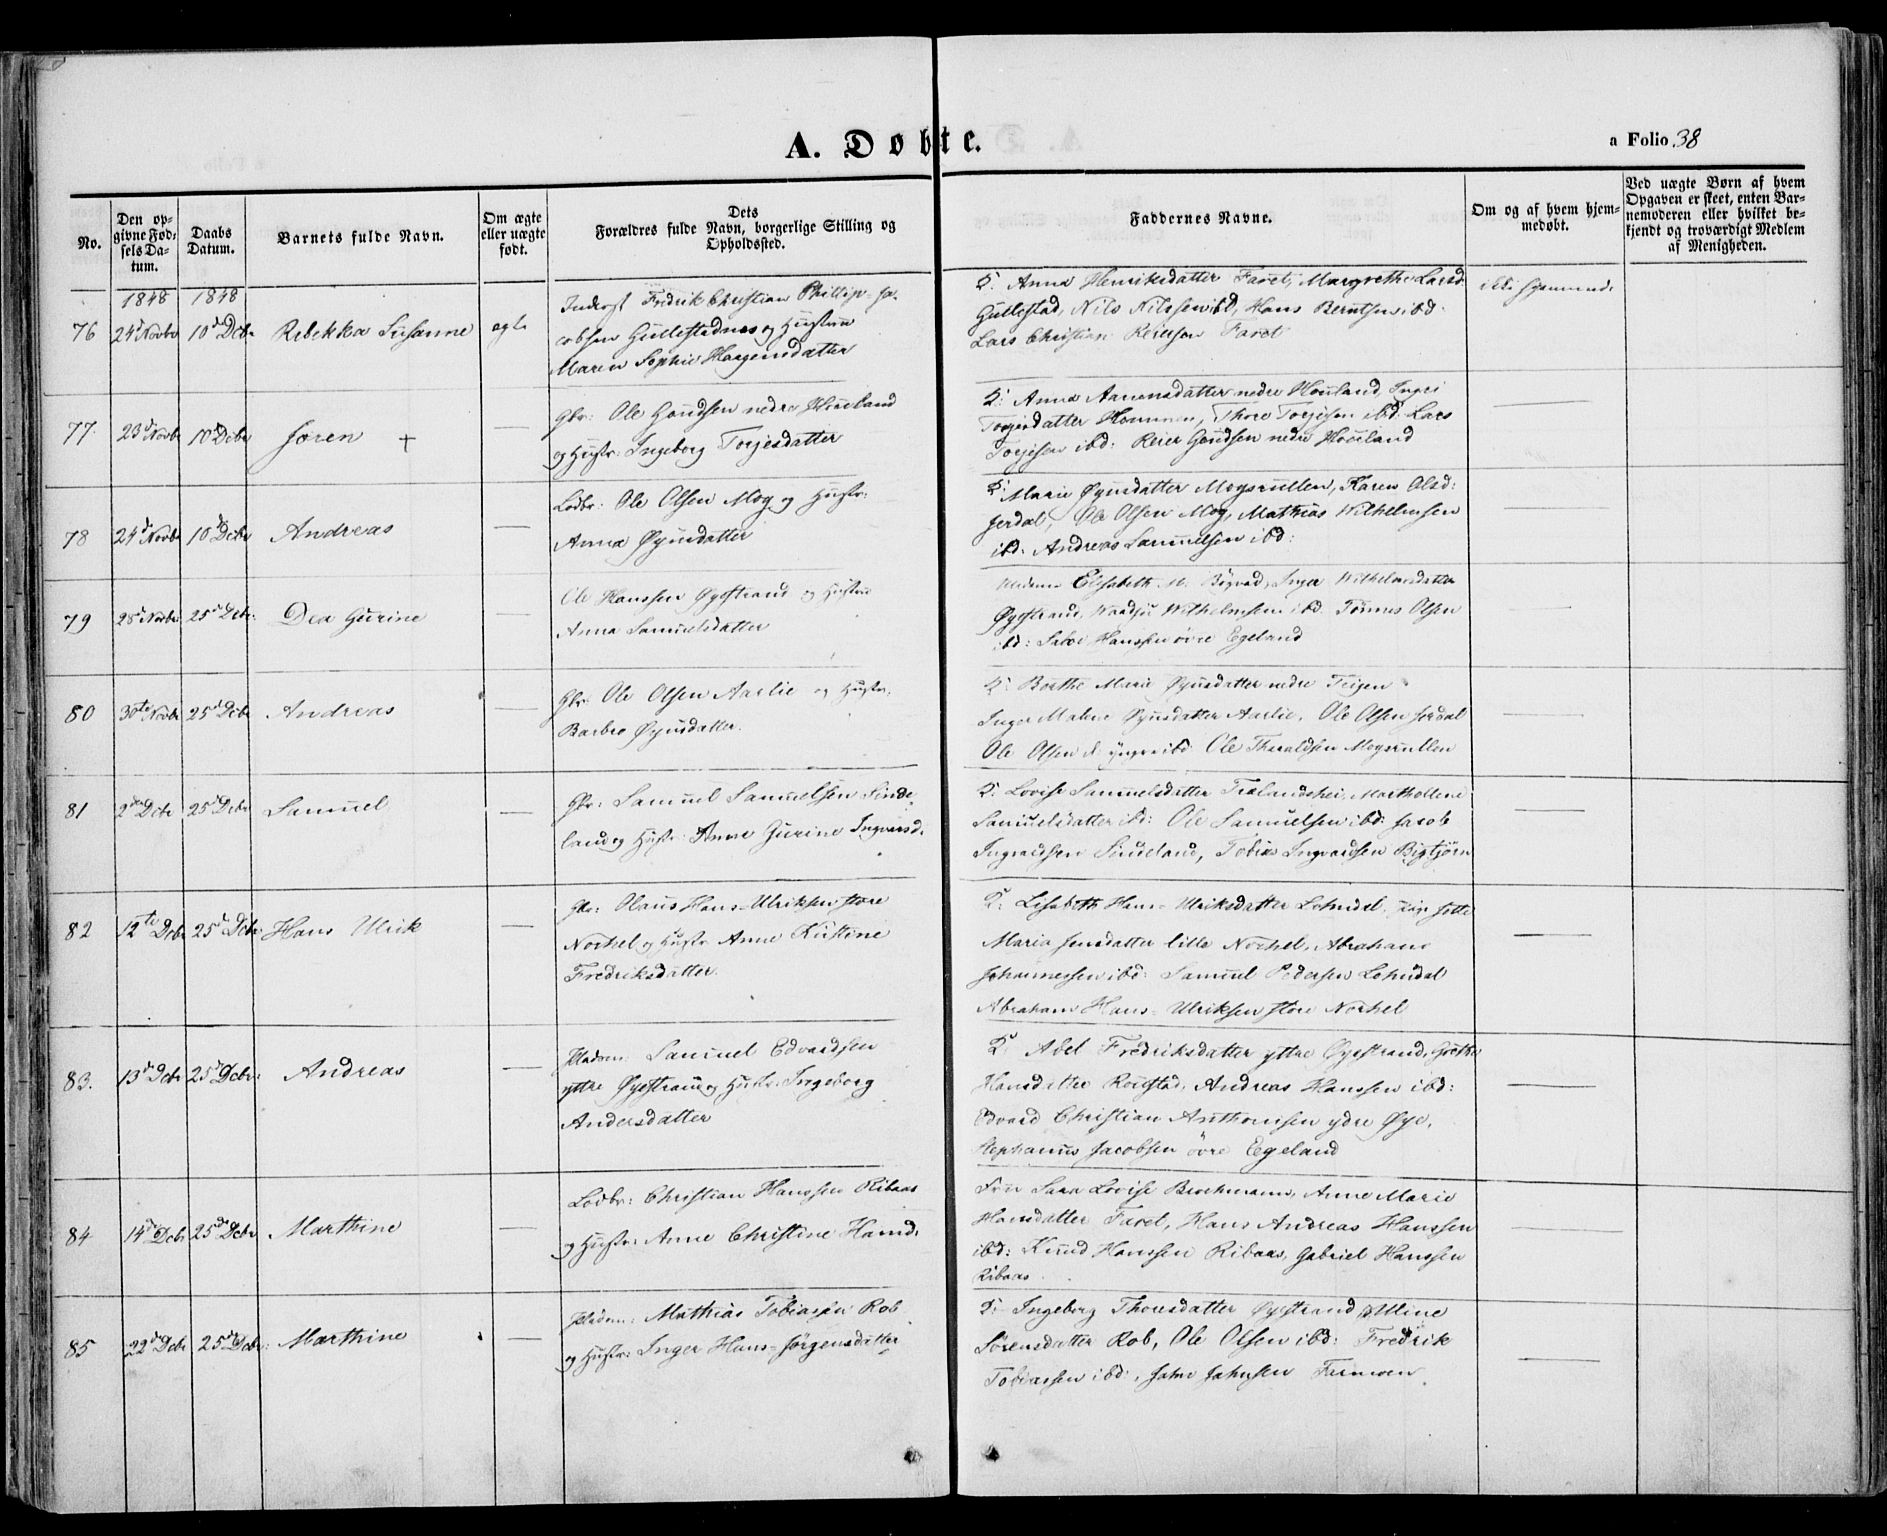 A. Døbte.
a Folio 38
No.
Den op-
givne Fød-
sels Da-
tum.
Daabs
Datum.
Barnets fulde Navn.
Om ægte
eller uægte
født.
Dets
Forældres fulde Navn, borgerlige Stilling og
Opholdssted.
Faddernes Navne.
Om og af hvem hjem-
medøbt.
Ved uægte Børn af hvem
Opgaven er skeet, enten Bar-
nemoderen eller hvilket be-
kjendt og troværdigt Medlem
af Menigheden.
1848 1848
76 24d Novbr 10d Dcbr Rebekka Susanne
Inderst Fredrik Christian Phillip Ja-
cobsen Gullestadnes og Hustrue
Maren Sophie Haagensdatter
K: Anna Henriksdatter Faret, Margrethe Larsd
Gullestad, Nils Nilssen ibd, Hans Berntsen ibd:
Lars Christian Faret
77. 23d Novbr 10d Dcbr Søren +
Gbr: Ole Gundsen nedre Houland
og Hustr: Ingeborg Torjesdatter
K: Anna Aanensdatter nedre Houland, Inger
Torjesdatter Thore Torjesen ibd: Lars
Torjesen ibd: Reier Gundsen nedre Houland
78 24d Novbr 10d Dcbr Andreas
Lodbr: Ole Olsen Moy og Hustr:
Anna Øjusdatter
K: Marie Øjusdatter Moysrullen, Karen Olsd:
Jerdal, Ole Olsen Moy, Mathias Wilhelmsen
ibd. Andreas Samuelsen ibd:
79 28d Novbr 25d Dcbr: Dea Gurine
Ole Hanssen Øyestrand og Hustrue
Anna Samuelsdatter
Elisabeth Inger Wilhelmsdatter
Øyestrand, Wilhelmsen ibd: Tønnes Olsen
ibd: Hanssen øvre Egeland
80 30te Novbr 25d Dcbr Andreas
Gbr: Ole Olsen Aarlie og Hustr:
Barbro Øjusdatter.
K: Berthe Marie Øjusdatter nedre Teigen
Inger Malene Øjusdatter Aarlie, Ole Olsen Jerdal
Ole Olsen d. yngre ibd: Ole Tharaldsen Moysrullen
81 2den Dcbr 25d Dcbr Samuel
Gbr: Samuel Samuelsen Sinde-
land og Hustr: Anne Gurine Ingvarsd.
K: Lovise Samuelsdatter Marthelline
Samuelsdatter ibd: Ole Samuelsen ibd: Jacob
Ingvardsen Sindeland, Tobias Ingvardsen Bigtjørn
82 12te Dcbr 25d Dcbr: Hans Ulrik
Gbr: Olaus Hans-Ulriksen store
Norhel og Hustr: Anne Kirstine
Fredriksdatter.
K: Lisabeth Hans-Ulriksdatter Lohndal, Pige Jette
Maria Jensdatter lille Norhel, Abraham
Johannessen ibd: Samuel Pedersen Lohndal
Abraham Hans-Ulriksen store Norhel
83. 13d Dcbr 25d Dcbr: Andreas
Pladsm: Samuel Edvardsen
ytre Øyestrand og Hustr: Ingeborg
Andersdatter
K: Abel Fredriksdatter ytre Øyestrand, Grethe
Hansdatter Roustad, Andreas Hanssen ibd:
Edvard Christian Anthonisen ydre Øye,
Stephanus Jacobsen øvre Egeland
84 14de Dcbr 25de Dcbr Marthine
Lodbr: Christian Hanssen Ribaas
og Hustr: Anne Christine Hansd.
Fru Sara Lovise Brochmann, Anne Marie
Hansdatter Faret, Hans Andreas Hanssen
ibd: Knud Hanssen Ribaas, Gabriel Hanssen
Ribaas
85 22de Dcbr 25de Dcbr: Marthine
Pladsm: Mathias Tobiassen Rob
og Hustr: Inger Hans-Jørgensdatter
K: Ingeborg Thoresdatter Øyestrand,
Sørensdatter Rob, Ole Olsen ibd: Fredrik
Tobiassen ibd:, John Johnsen